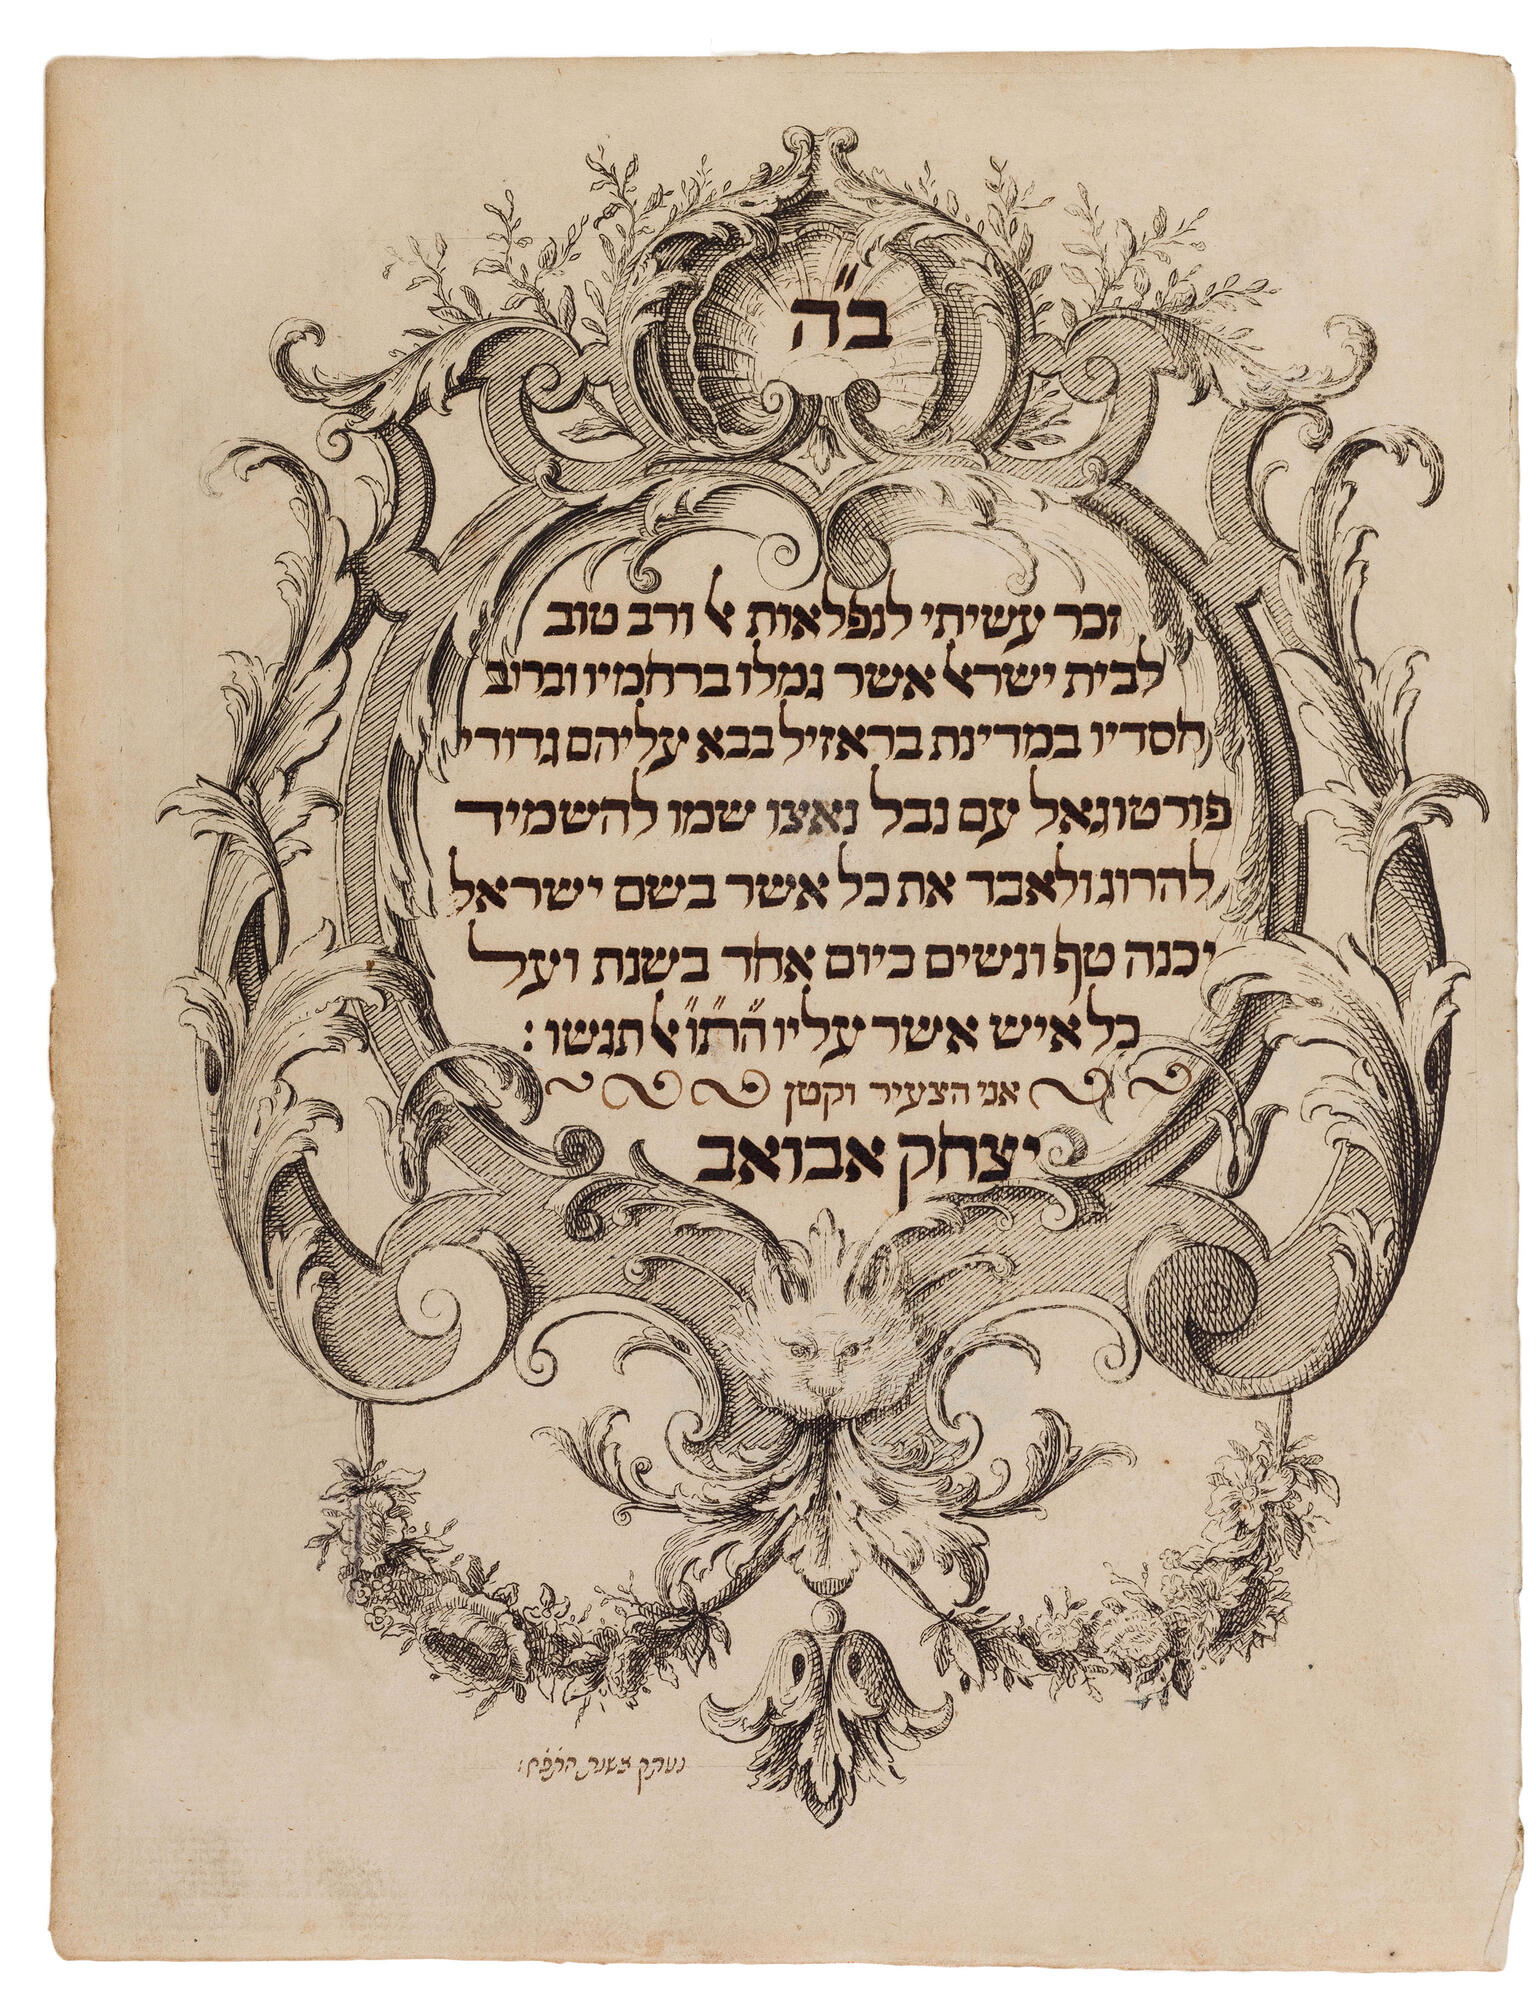 ב"ה
זכר עשיתי לנפלאות ﭏ ורב טוב
לבית ישרﭏ אשר גמלו ברחמיו וברוב
חסדיו במדינת בראזיל בבא עליהם גדודי
פורטוגאל עם נבל נאצו שמו להשמיד
להרוג ולאבד את כל אשר בשם ישראל
יכנה טף ונשים ביום אחד בשנת ועל
כל איש אשר עליו הת"ו ﭏ תגשו:
אני הצעיר וקטן
יצחק אבואב
נעתק בשנת